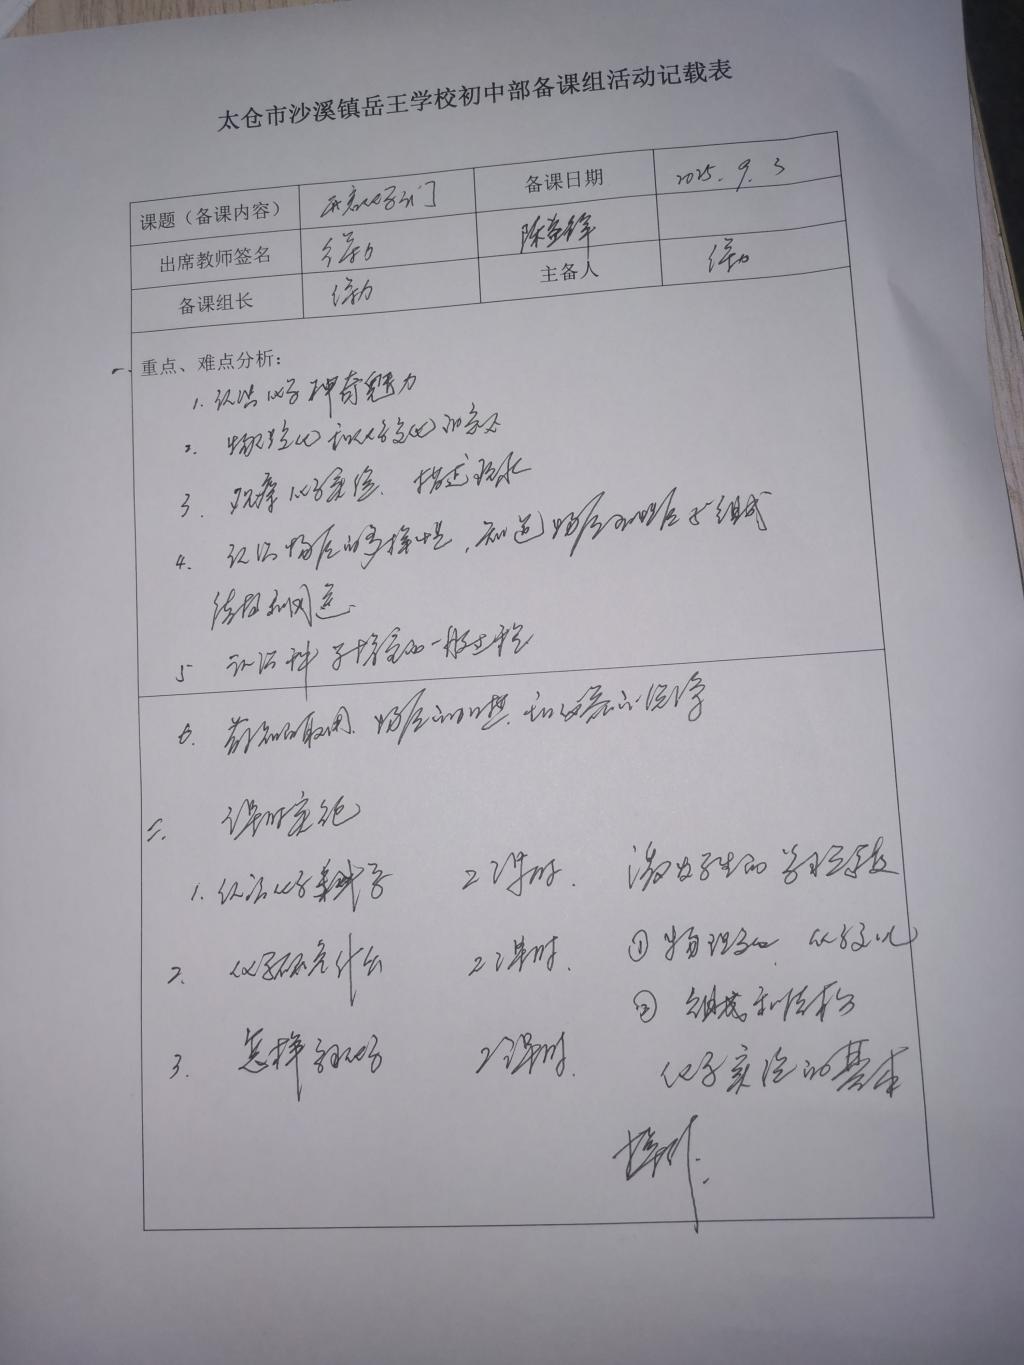 太仓市沙溪镇岳王学校初中部备课组活动记载表
课题（备课内容） 开启化学之门 备课日期 2025.9.3
出席教师签名
备课组长 主备人
一. 重点、难点分析：
1. 认识化学神奇魅力
2. 物理变化和化学变化的
3. 观察化学实验、描述现象
4. 认识物质的多样性，知道物质的性质与组成
结构和用途
5 认识科学探究的一般过程
6. 药品的取用、物质的加热、和仪器的洗涤
二. 课时安排
1. 认识化学科学 2课时. 激发学生的学习兴趣
2. 化学研究什么 2课时. ① 物理变化、化学变化
② 组成和结构
3. 怎样学习化学 2课时. 化学实验的基本